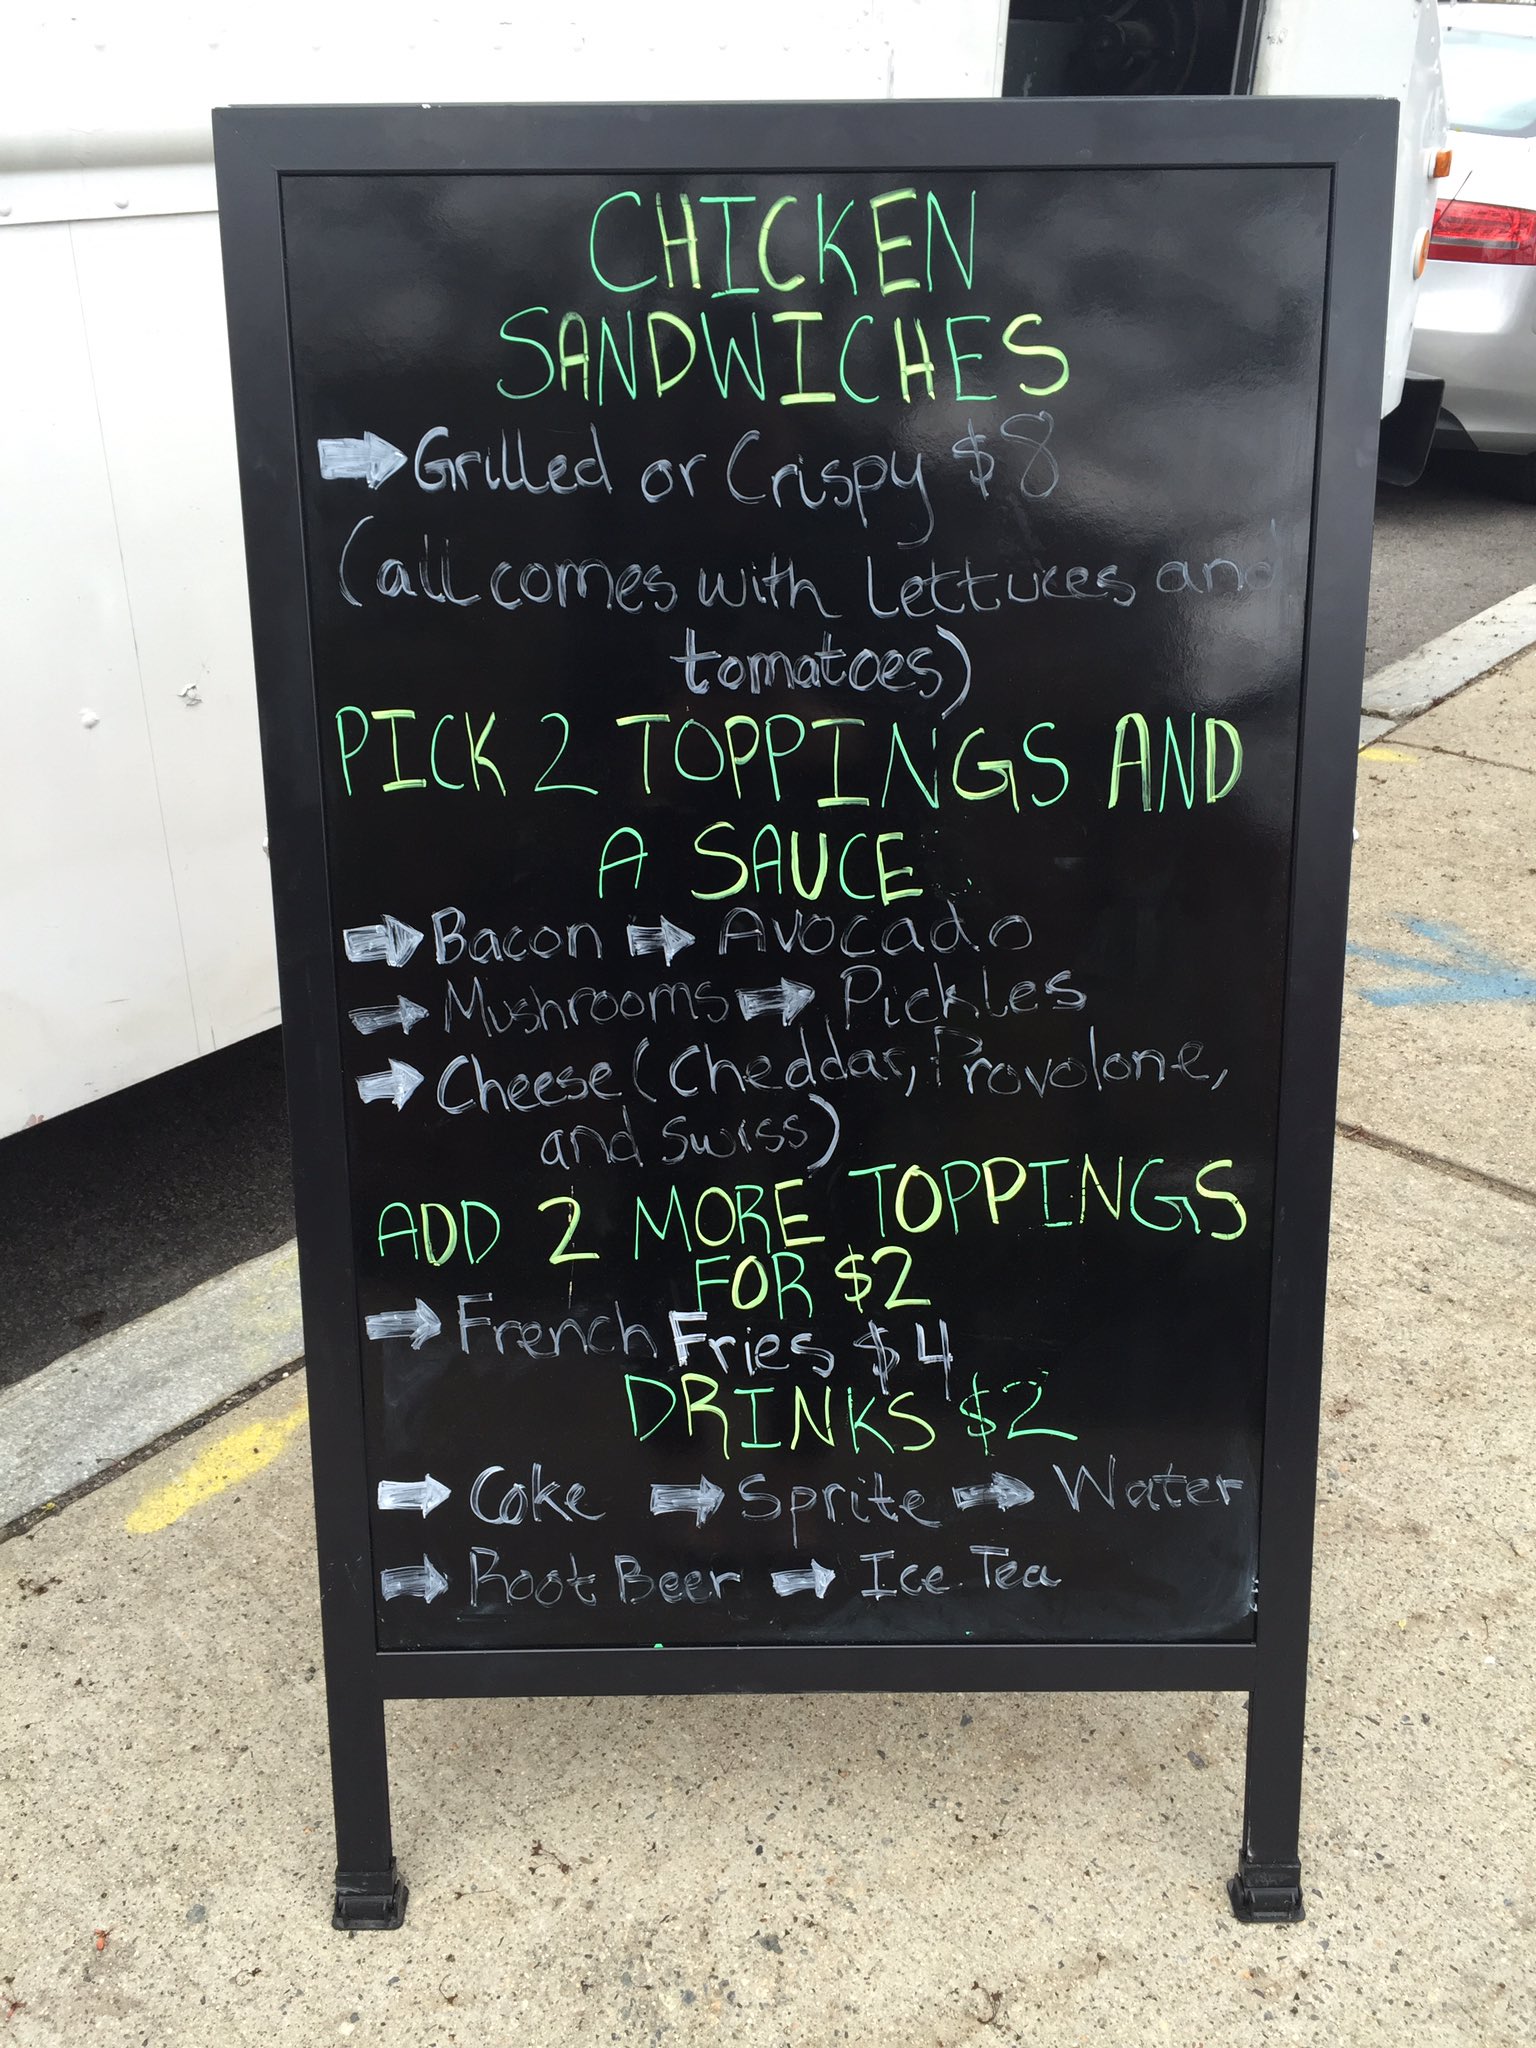 CHICKEN
SANDWICHES
Grilled or Crispy $8
(all comes with lettuces and
tomatoes)
PICK 2 TOPPINGS AND
A SAUCE
Bacon Avocado
Mushrooms Pickles
Cheese (Cheddar, Provolone,
and swiss)
ADD 2 MORE TOPPINGS
FOR $2
French Fries $4
DRINKS $2
Coke Sprite Water
Root Beer Ice Tea